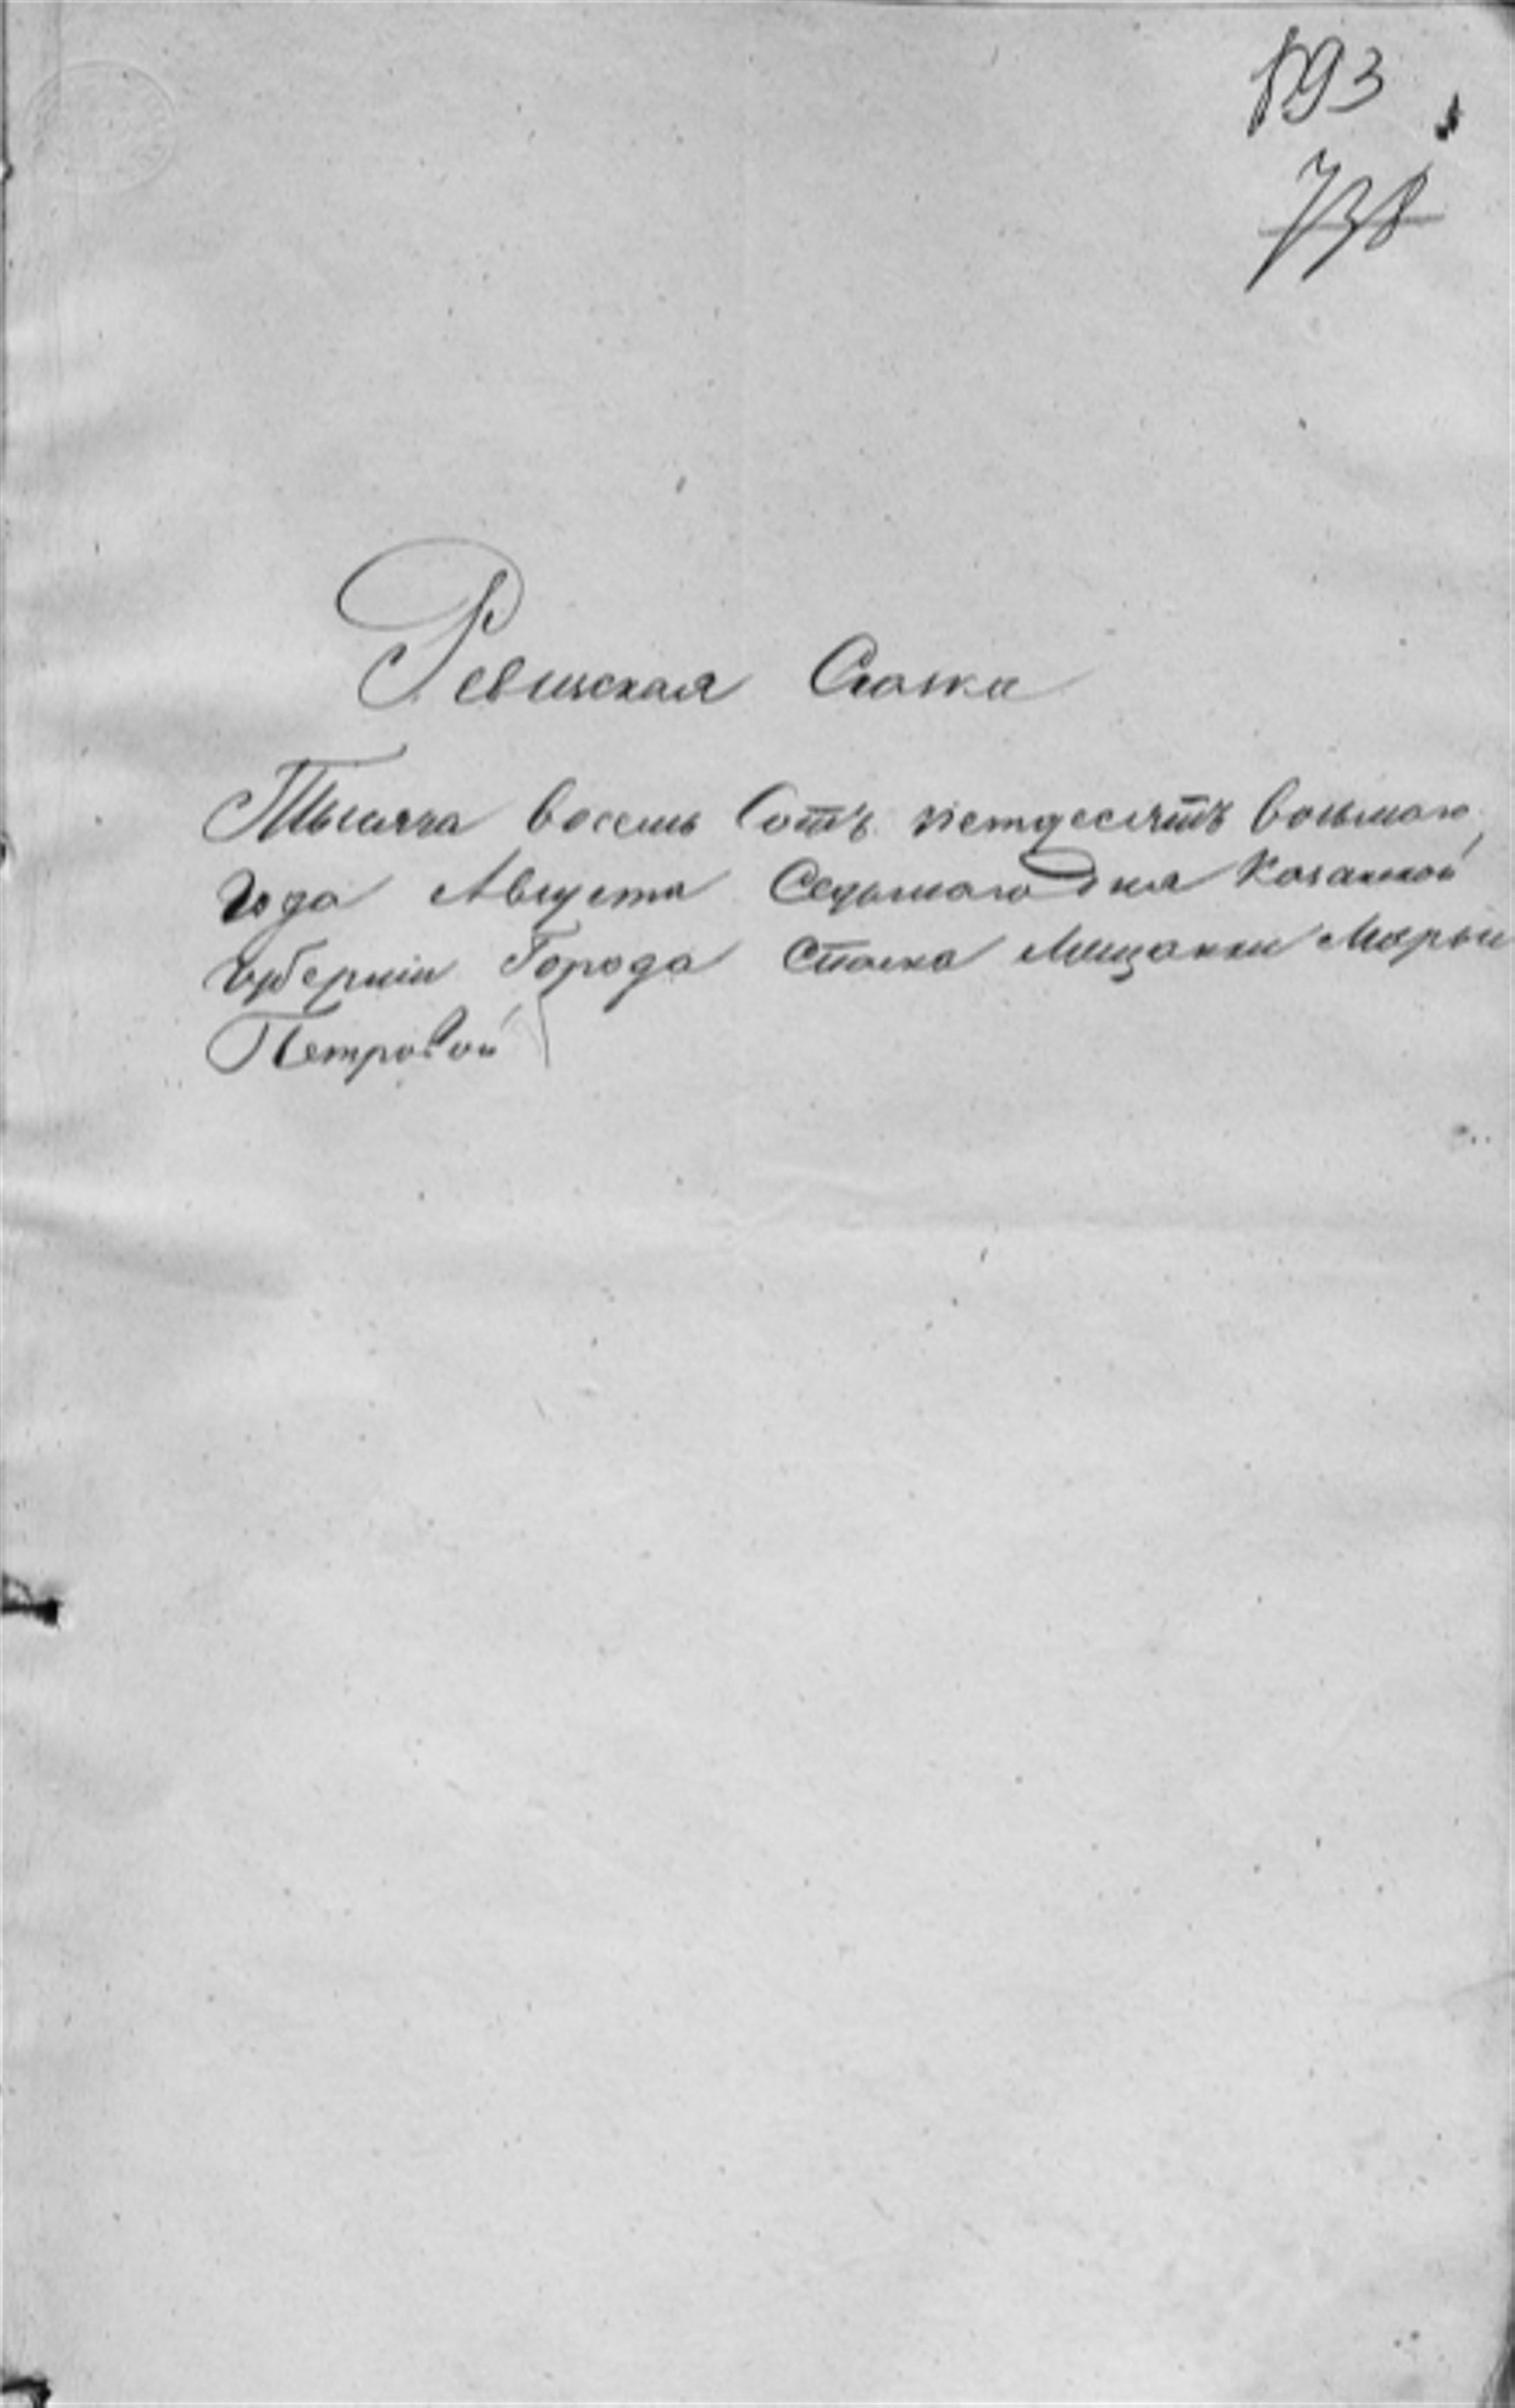 193
738
Ревиская Скаска
Тысяча восемь сотъ петдесятъ восьмаго
года Августа Седьмаго дня Казанской
губерніи Города Спаска Мещанки Марьи
Петровой